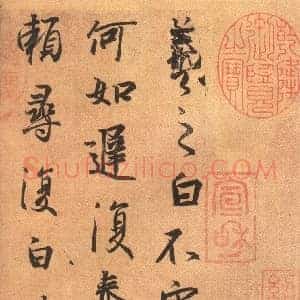 羲之白不審
何如遲復奉
賴尋復白
Shufaziliao.com
宣和